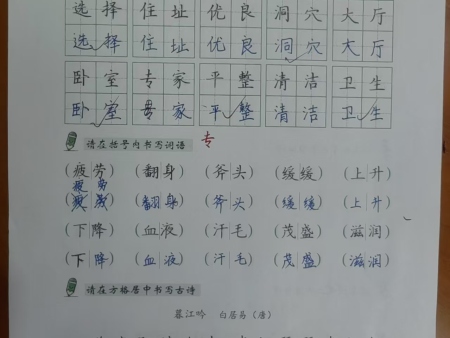 选择 住址 优良 洞穴 大厅
选择 住址 优良 洞穴 大厅
卧室 专家 平整 清洁 卫生
卧室 专家 平整 清洁 卫生
请在括号内书写词语 专
(疲劳) (翻身) (斧头) (缓缓) (上升)
疲劳
(疲劳) (翻身) (斧头) (缓缓) (上升)
(下降) (血液) (汗毛) (茂盛) (滋润)
(下降) (血液) (汗毛) (茂盛) (滋润)
请在方格居中书写古诗
暮江吟 白居易(唐)